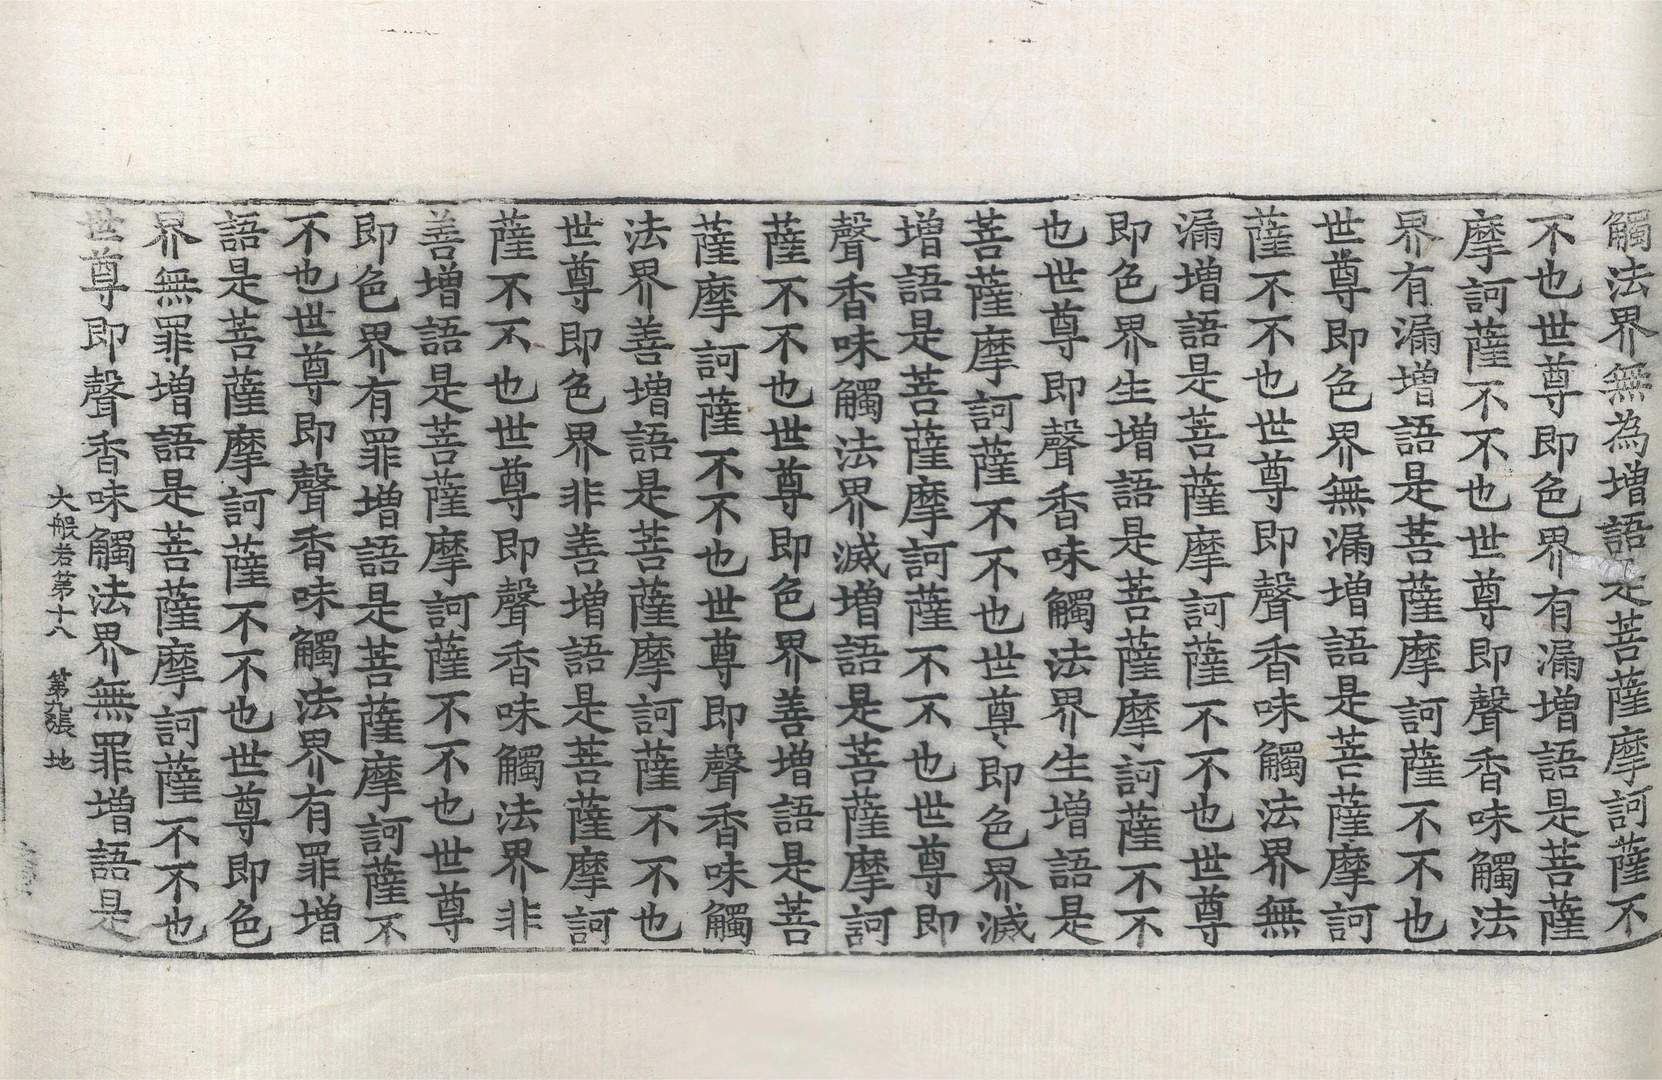 觸法界無為增語是菩薩摩訶薩不
不也世尊即色界有漏增語是菩薩
摩訶薩不不也世尊即聲香味觸法
界有漏增語是菩薩摩訶薩不不也
世尊即色界無漏增語是菩薩摩訶
薩不不也世尊即聲香味觸法界無
漏增語是菩薩摩訶薩不不也世尊
即色界生增語是菩薩摩訶薩不不
也世尊即聲香味觸法界生增語是
菩薩摩訶薩不不也世尊即色界滅
增語是菩薩摩訶薩不不也世尊即
聲香味觸法界滅增語是菩薩摩訶
薩不不也世尊即色界善增語是菩
薩摩訶薩不不也世尊即聲香味觸
法界善增語是菩薩摩訶薩不不也
世尊即色界非善增語是菩薩摩訶
薩不不也世尊即聲香味觸法界非
善增語是菩薩摩訶薩不不也世尊
即色界有罪增語是菩薩摩訶薩不
不也世尊即聲香味觸法界有罪增
語是菩薩摩訶薩不不也世尊即色
界無罪增語是菩薩摩訶薩不不也
世尊即聲香味觸法界無罪增語是
大般若第十八 第九張 地